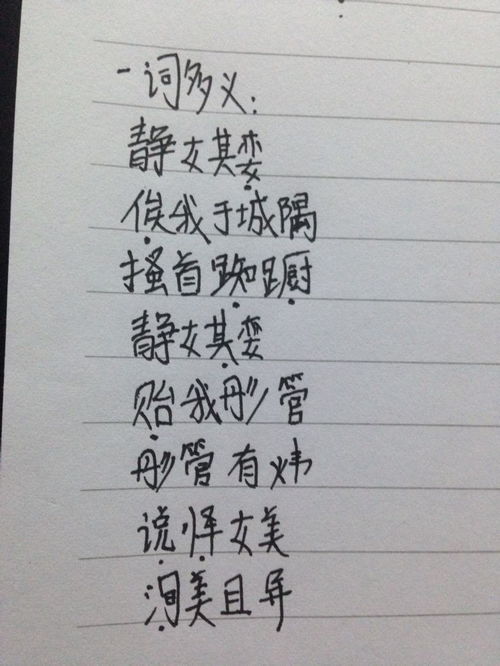 一词多义:
静女其娈
俟我于城隅
搔首踟蹰
静女其娈
贻我彤管
彤管有炜
说怿女美
洵美且异